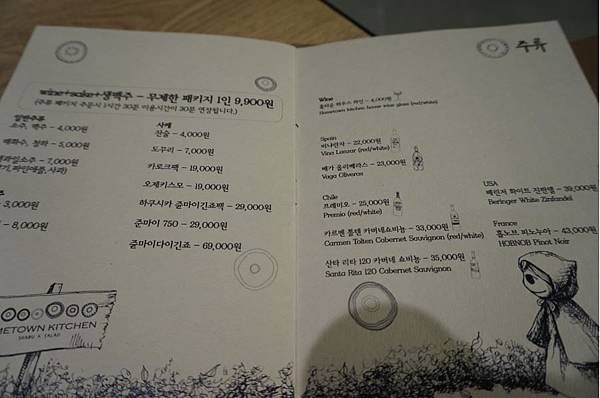 wine+sake+생맥주 - 무제한 패키지 1인 9,900원
(주류 패키지 주문시 1시간 30분 이용시간이 30분 연장됩니다.)
일반주류
소주, 맥주 - 4,000원
매화수, 청하 - 5,000원
과일소주 - 7,000원
파인애플, 사과)
- 3,000원
- 8,000원
사케
잔술 - 4,000원
도꾸리 - 7,000원
카로크팩 - 19,000원
오제키스모 - 19,000원
하쿠시카 준마이긴죠팩 - 29,000원
준마이 750 - 29,000원
준마이다이긴죠 - 69,000원
METOWN KITCHEN
SHABU & SALAD
주류
Wine
홈타운 하우스 와인 - 4,000원
Hometown kitchen house wine glass (red/white)
Spain
비냐란자 - 22,000원
Vina Lanzar (red/white)
베가 올리베라스 - 23,000원
Vega Oliveras
Chile
프레미오 - 25,000원
Premio (red/white)
카르멘 톨텐 카버네쇼비뇽 - 33,000원
Carmen Tolten Cabernet Sauvignon (red/white)
산타 리타 120 카버네 쇼비뇽 - 35,000원
Santa Rita 120 Cabernet Sauvignon
USA
베린저 화이트 진판델 - 39,000원
Beringer White Zinfandel
France
홉노브 피노누아 - 43,000원
HOBNOB Pinot Noir